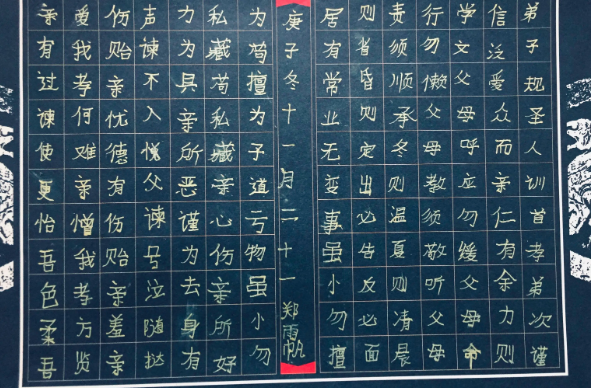 弟子规圣人训首孝弟次谨
信泛爱众而亲仁有余力则
学文父母呼应勿缓父母命
行勿懒父母教须敬听父母
责须顺承冬则温夏则清晨
则省昏则定出必告反必面
居有常业无变事虽小勿擅
庚子冬十一月二十一 郑雨帆
为苟擅为子道亏物虽小勿
私藏苟私藏亲心伤亲所好
力为具亲所恶谨为去身有
声谏不入悦父谏号泣随挞
伤贻亲忧德有伤贻亲羞亲
爱我孝何难亲憎我孝方贤
亲有过谏使更怡吾色柔吾